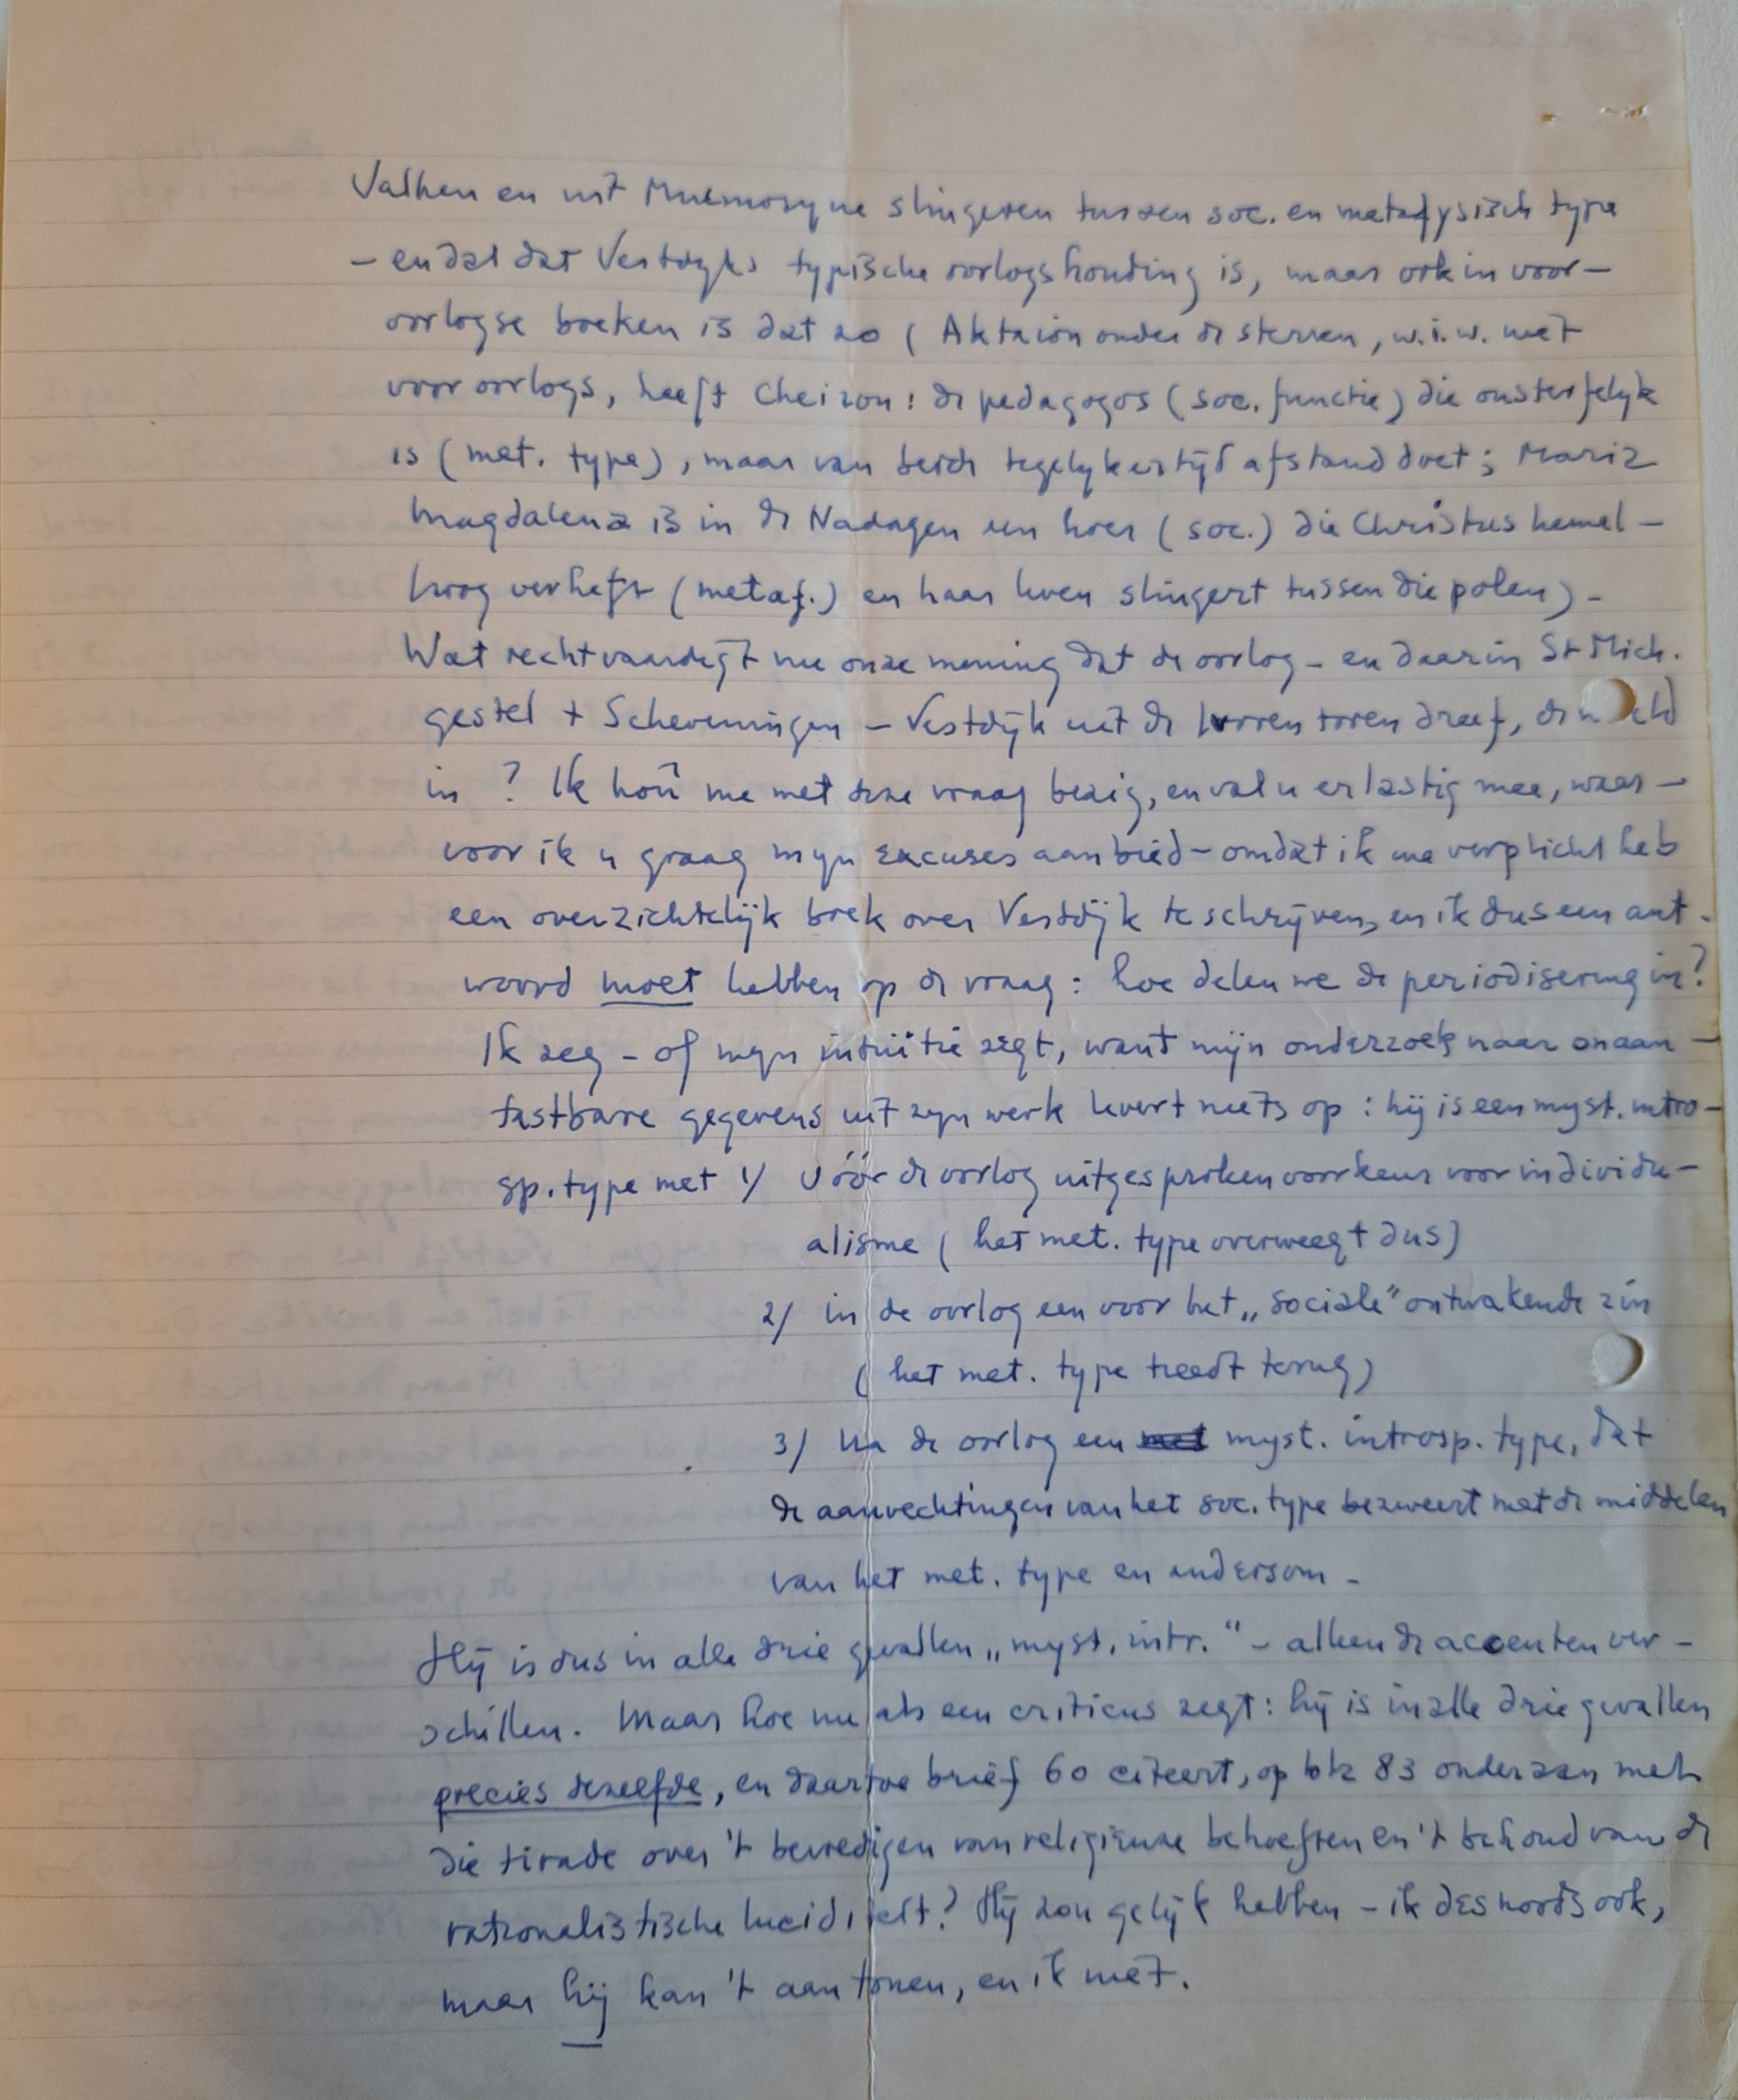 Valken en uit Mnemosyne slingeren tussen soc. en metafysisch type
– en dat dat Vestdijks typische oorlogshouding is, maar ook in voor-
oorlogse boeken is dat zo ( Aktaion onder de sterren, w.i.w. niet
vooroorlogs, heeft Cheiron: de pedagogos (soc. functie) die onsterfelijk
is (met. type), maar van beide tegelijkertijd afstand doet; Maria
Magdalena is in de Nadagen een hoer (soc.) die Christus hemel-
hoog verheft (metaf.) en haar leven slingert tussen die polen) –
Wat rechtvaardigt nu onze mening dat de oorlog – en daarin St Mich.
gestel + Scheveningen – Vestdijk uit de ivoren toren dreef, de
in ? Ik hou me met deze vraag bezig, en val u er lastig mee, waar-
voor ik u graag mijn excuses aanbied – omdat ik me verplicht heb
een overzichtelijk boek over Vestdijk te schrijven, en ik dus een ant-
woord moet hebben op de vraag : hoe delen we de periodisering in?
Ik zeg – of mijn intuïtie zegt, want mijn onderzoek naar onaan-
tastbare gegevens uit zijn werk levert niets op : hij is een myst. intro-
sp. type met 1/ vóór de oorlog uitgesproken voorkeur voor individu-
alisme ( het met. type overweegt dus)
2/ in de oorlog een voor het „sociale” ontwakende zin
( het met. type treedt terug)
3/ na de oorlog een myst. introsp. type, dat
de aanvechtingen van het soc. type bezweert met de middelen
van het met. type en andersom –
Hij is dus in alle drie gevallen „myst. intr.” – alleen de accenten ver-
schillen. Maar hoe nu als een criticus zegt: hij is in alle drie gevallen
precies dezelfde, en daartoe brief 60 citeert, op blz 83 onderaan met
die tirade over 't bevredigen van religieuze behoeften en 't behoud van de
rationalistische luciditeit? Hij zou gelijk hebben – ik desnoods ook,
maar hij kan 't aantonen, en ik niet.